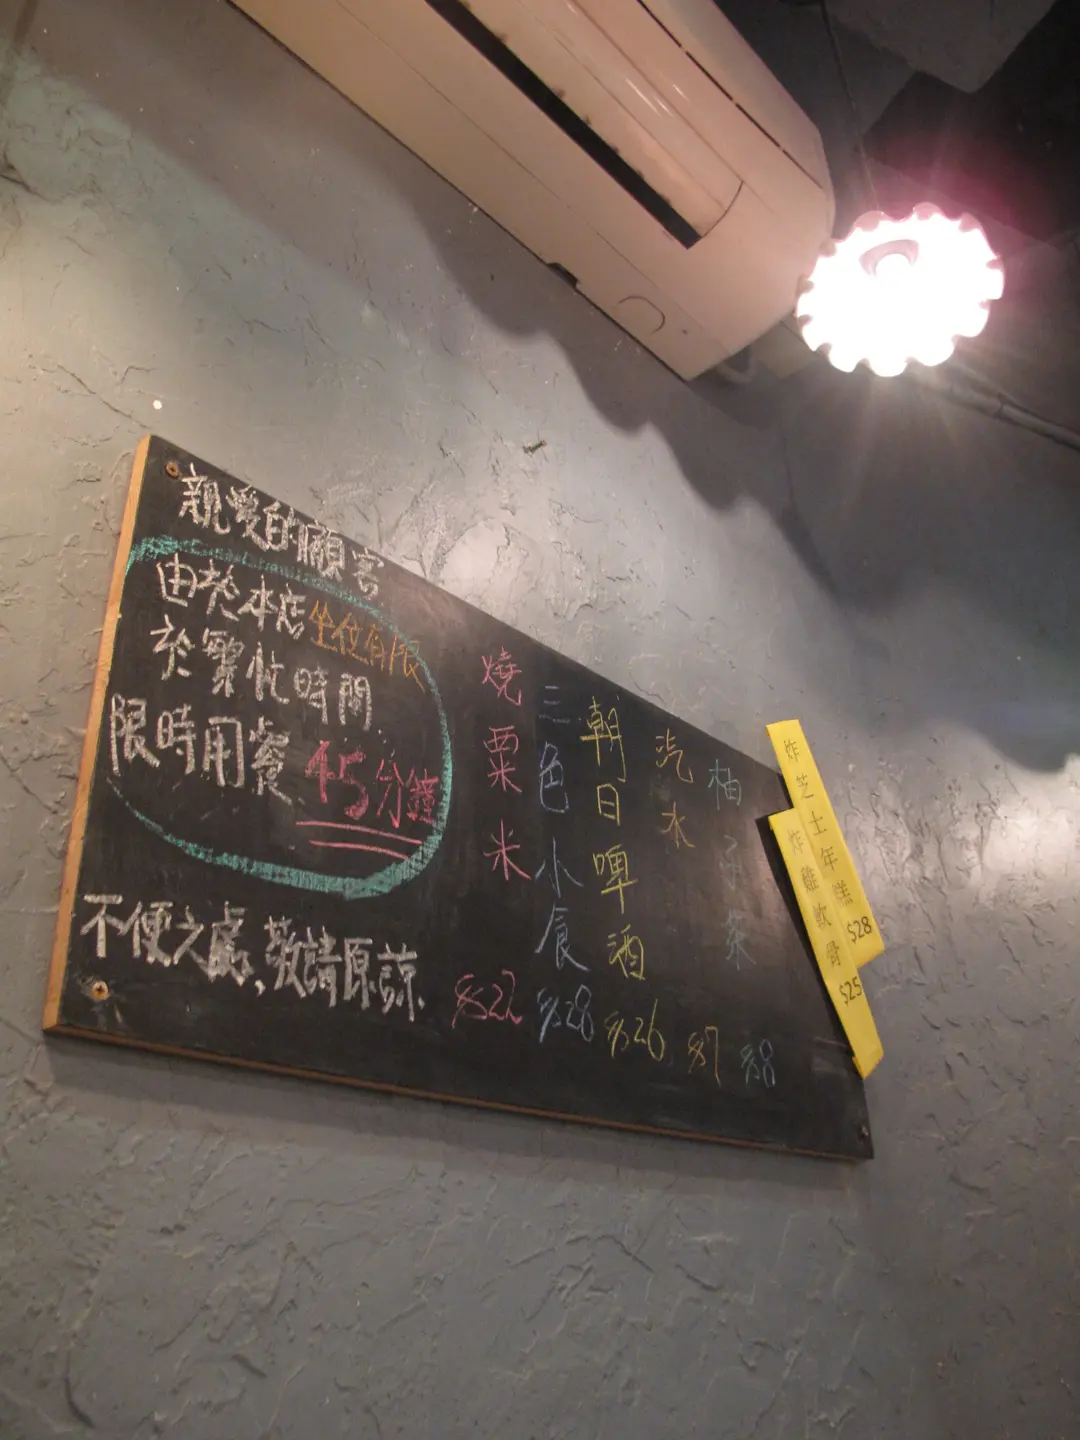 親愛的顧客
由於本店坐位有限
於繁忙時間
限時用餐 45分鐘
不便之處,敬請原諒.
燒粟米 $22
三色小食 $28
朝日啤酒 $26
汽水 $7
柚子茶 $8
炸芝士年糕 $28
炸雞軟骨 $25